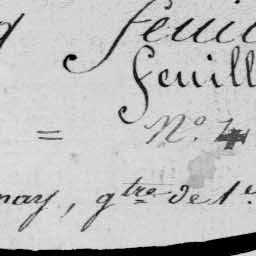 feuil
feuill
= N.º 4
nay, gtre de 1er